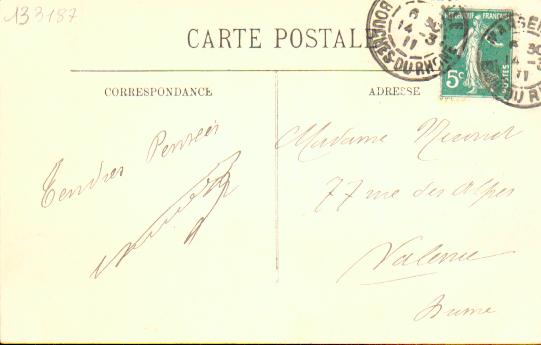 133187
CARTE POSTALE
CORRESPONDANCE
ADRESSE
BOUCHES DU RHONE
14-3
11
REPUBLIQUE FRANÇAISE
5c
POSTES
MARSEI
14-3
11
DU RH
Tendres Pensées
Madame
77 rue des Alpes
Valence
Drome